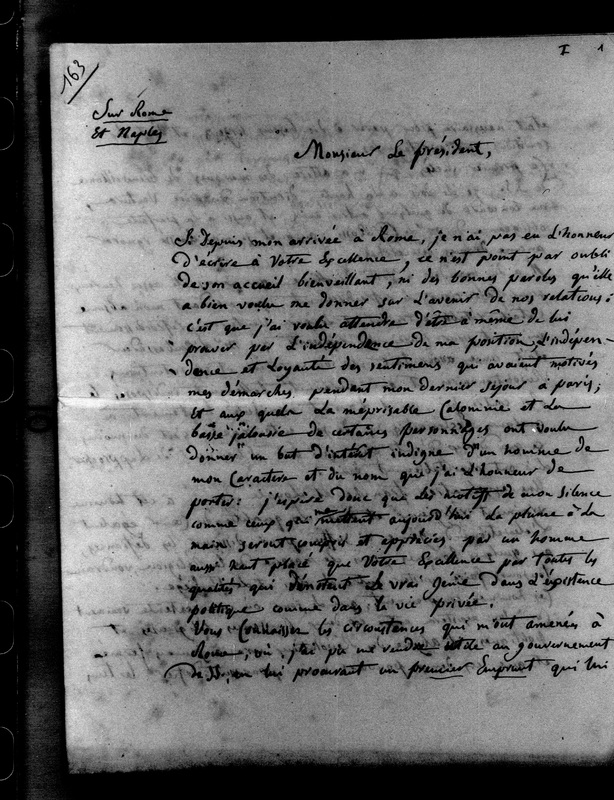 I 1
163
Sur Rome
Et Naples
Monsieur Le président,
Si Depuis mon arrivée à Rome, je n'ai pas eu L'honneur
d'écrire à Votre Excellence, ce n'est point par oubli
de son accueil bienveillant, ni des bonnes paroles qu'elle
a bien voulu me donner sur L'avenir de nos relations:
c'est que j'ai voulu attendre d'être à même de lui
prouver par L'indépendance de ma position, L'indépen-
dence et Loyauté des sentimens qui avaient motivés
mes démarches pendant mon dernier séjour à paris,
Et aux quels La méprisable Calomnie et La
basse jalousie de certains personnages ont voulu
donner un but d'intérêt indigne d'un homme de
mon Caractère et du nom que j'ai L'honneur de
porter: j'espère donc que Les motifs de mon silence
comme ceux qui mettent aujourd'hui La plume à La
main seront compris et appréciés par un homme
aussi haut placé que Votre Excellence par toutes les
qualités qui dénotent Le vrai génie dans L'existence
politique comme dans la vie privée.
Vous Connaissez les circonstances qui m'ont amenés à
Rome, où j'ai pu me rendre utile au gouvernement
de SS, en lui procurant un premier Emprunt qui lui